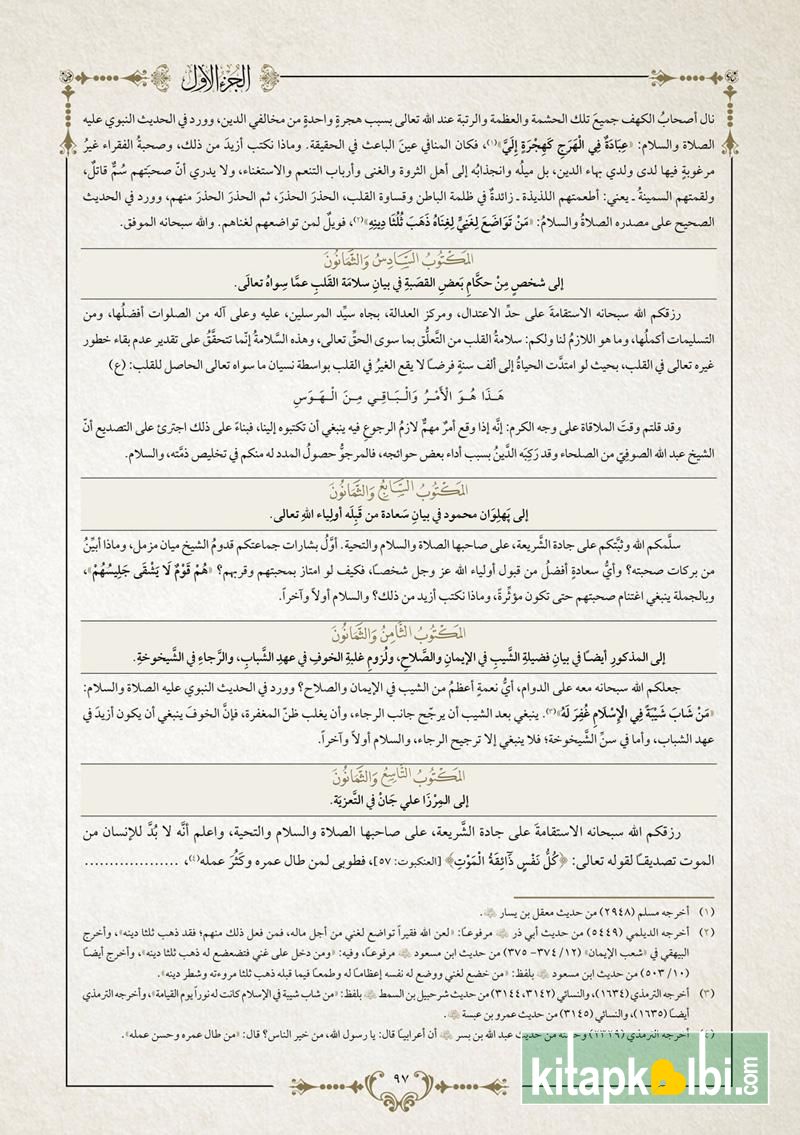 الجزء الأول
نال أصحابُ الكهف جميعَ تلك الحشمة والعظمة والرتبة عند الله تعالى بسبب هجرةٍ واحدةٍ من مخالفي الدين، وورد في الحديث النبوي عليه
الصلاة والسلام: «عِبَادَةٌ فِي الْهَرَجِ كَهِجْرَةٍ إِلَيَّ»(١)، فكان المنافي عينَ الباعث في الحقيقة. وماذا نكتب أزيدَ من ذلك، وصحبةُ الفقراء غيرُ
مرغوبةٍ فيها لدى ولدي بهاء الدين، بل ميلُه وانجذابُه إلى أهل الثروة والغنى وأرباب التنعم والاستغناء، ولا يدري أنّ صحبتَهم سُمٌّ قاتلٌ،
ولقمتهم السمينةُ ـ يعني: أطعمتهم اللذيذة ـ زائدةٌ في ظلمة الباطن وقساوة القلب، الحذرَ الحذرَ، ثم الحذرَ الحذرَ منهم، وورد في الحديث
الصحيح على مصدره الصلاةُ والسلامُ: «مَنْ تَوَاضَعَ لِغَنِيٍّ لِغِنَاهُ ذَهَبَ ثُلُثَا دِينِهِ»(٢)، فويلٌ لمن تواضعهم لغناهم. والله سبحانه الموفق.
المَكْتُوبُ السَّادِسُ وَالثَّمَانُونَ
إلى شخصٍ مِنْ حكَّامِ بَعضِ القصَبةِ في بيانِ سلامَة القَلبِ عمَّا سِواهُ تعالَى.
رزقكم الله سبحانه الاستقامةَ على حدِّ الاعتدال، ومركز العدالة، بجاه سيِّد المرسلين، عليه وعلى آله من الصلوات أفضلُها، ومن
التسليمات أكملُها، وما هو اللازمُ لنا ولكم: سلامةُ القلب من التَّعلُّق بما سوى الحقِّ تعالى، وهذه السَّلامةُ إنّما تتحقَّقُ على تقدير عدم بقاء خطور
غيره تعالى في القلب، بحيث لو امتدَّت الحياةُ إلى ألف سنةٍ فرضًا لا يقع الغيرُ في القلب بواسطة نسيان ما سواه تعالى الحاصل للقلب: (ع)
هَـذَا هُـوَ الْأَمْـرُ وَالْـبَـاقِـي مِـنَ الْـهَـوَسِ
وقد قلتم وقتَ الملاقاة على وجه الكرم: إنَّه إذا وقع أمرٌ مهمٌّ لازمُ الرجوعِ فيه ينبغي أن تكتبوه إلينا، فبناءً على ذلك اجترئ على التصديع أنّ
الشيخ عبد الله الصوفيّ من الصلحاء وقد رَكِبَه الدَّينُ بسبب أداء بعض حوائجه، فالمرجوُّ حصولُ المدد له منكم في تخليص ذمَّته، والسلام.
المَكْتُوبُ السَّابِعُ وَالثَّمَانُونَ
إلى پَهلِوَان محمود في بيانِ سَعادة من قَبِلَه أولياء اللهِ تعالى.
سلَّمكم الله وثبَّتكم على جادة الشَّريعة، على صاحبها الصلاة والسلام والتحية. أوَّلُ بشارات جماعتكم قدومُ الشيخ ميان مزمل، وماذا أبيِّنُ
من بركات صحبته؟ وأيُّ سعادةٍ أفضلُ من قبول أولياء الله عز وجل شخصًا، فكيف لو امتاز بمحبتهم وقربهم؟ «هُمْ قَوْمٌ لَا يَشْقَى جَلِيسُهُمْ»،
وبالجملة ينبغي اغتنام صحبتهم حتى تكون مؤثِّرةً، وماذا نكتب أزيد من ذلك؟ والسلام أولاً وآخراً.
المَكْتُوبُ الثَّامِنُ وَالثَّمَانُونَ
إلى المذكورِ أيضًا في بيانِ فضيلةِ الشَّيبِ في الإيمانِ والصَّلاحِ، ولُزومِ غلبةِ الخوفِ في عهدِ الشَّبابِ، والرَّجاءِ في الشَّيخوخةِ.
جعلكم الله سبحانه معه على الدوام، أيُّ نعمةٍ أعظمُ من الشيب في الإيمان والصلاح؟ وورد في الحديث النبوي عليه الصلاة والسلام:
«مَنْ شَابَ شَيْبَةً فِي الْإِسْلَامِ غُفِرَ لَهُ»(٣). ينبغي بعد الشيب أن يرجّح جانب الرجاء، وأن يغلب ظنّ المغفرة، فإنَّ الخوفَ ينبغي أن يكون أزيدَ في
عهد الشباب، وأما في سنِّ الشَّيخوخة؛ فلا ينبغي إلا ترجيح الرجاء، والسلام أولاً وآخراً.
المَكْتُوبُ التَّاسِعُ وَالثَّمَانُونَ
إلى المِرْزَا علي جَانْ في التَّعزيَة.
رزقكم الله سبحانه الاستقامةَ على جادة الشَّريعة، على صاحبها الصلاة والسلام والتحية، واعلم أنَّه لا بُدَّ للإنسان من
الموت تصديقًا لقوله تعالى: ﴿كُلُّ نَفْسٍ ذَائِقَةُ الْمَوْتِ﴾ [العنكبوت: ٥٧]، فطوبى لمن طال عمره وكَثُرَ عمله(٤)، ...................
(١) أخرجه مسلم (٢٩٤٨) من حديث معقل بن يسار ﷺ.
(٢) أخرجه الديلمي (٥٤٤٩) من حديث أبي ذر مرفوعًا: «لعن الله فقيراً تواضع لغني من أجل ماله، فمن فعل ذلك منهم؛ فقد ذهب ثلثا دينه»، وأخرج
البيهقي في «شعب الإيمان» (١٢/ ٣٧٤- ٣٧٥) من حديث ابن مسعود مرفوعًا، وفيه: «ومن دخل على غني فتضعضع له ذهب ثلثا دينه»، وأخرج أيضًا
(١٠/ ٥٠٣) من حديث ابن مسعود بلفظ: «من خضع لغني ووضع له نفسه إعظامًا له وطمعًا فيما قبله ذهب ثلثا مروءته وشطر دينه».
(٣) أخرجه الترمذي (١٦٣٤)، والنسائي (٣١٤٢، ٣١٤٤) من حديث شرحبيل بن السمط بلفظ: «من شاب شيبة في الإسلام كانت له نوراً يوم القيامة»، وأخرجه الترمذي
أيضًا (١٦٣٥)، والنسائي (٣١٤٥) من حديث عمرو بن عبسة.
(٤) أخرجه الترمذي من حديث عبد الله بن بسر أن أعرابيا قال: يا رسول الله، من خير الناس؟ قال: «من طال عمره وحسن عمله».
٩٧
kitapkalbi.com